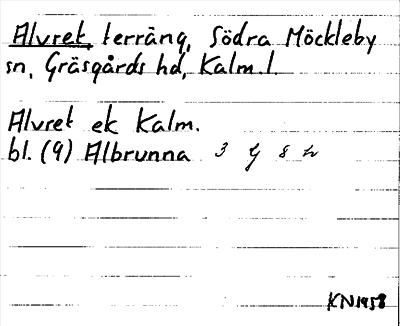 Alvret, terräng, Södra Möckleby
sn, Gräsgårds hd, Kalm. l.
Alvret ek Kalm.
bl. (9) Albrunna 3 g 8 h
KN 1958